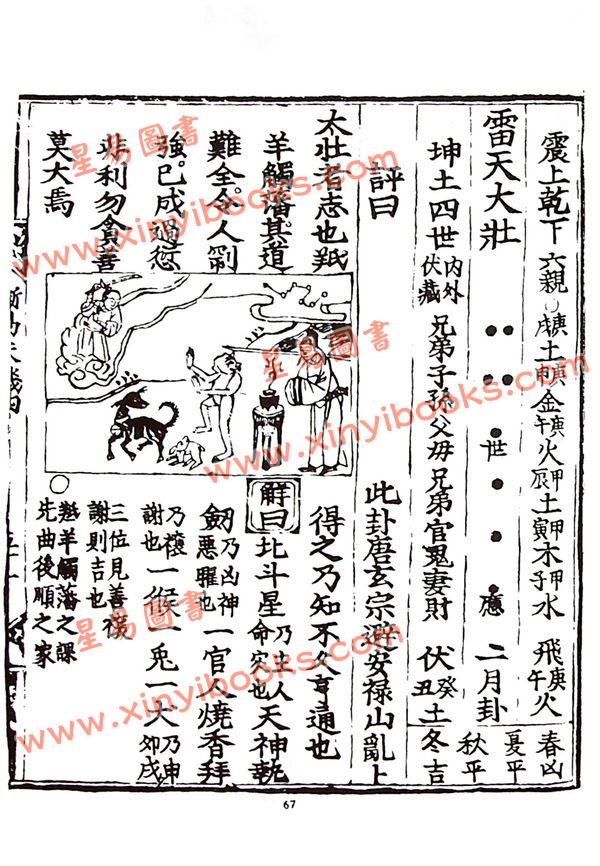 震上乾下 六親 庚戌土庚申金庚午火甲辰土甲寅木甲子水 飛庚午火
雷天大壯 世 應 二月卦
春凶
夏平
秋平
冬吉
坤土四世 內外伏藏 兄弟子孫父母兄弟官鬼妻財 伏癸丑土
評曰 此卦唐玄宗避安祿山亂上
得之乃知不久亨通也
太壯者志也羝
羊觸藩其道
難全令人剛
強已成過愆
非利勿貪善
莫大焉
解曰北斗星乃主人命 也天神執
劒乃凶神惡曜也一官人燒香拜
乃禳謝也一猴一兎一犬乃申卯戌
三位見善禳
謝則吉也
羝羊觸藩之課
先曲後順之家
67
星易圖書
www.xinyibooks.com
星易圖書
www.xinyibooks.com
星易圖書
www.xinyibooks.com
星易圖書
www.xinyibooks.com